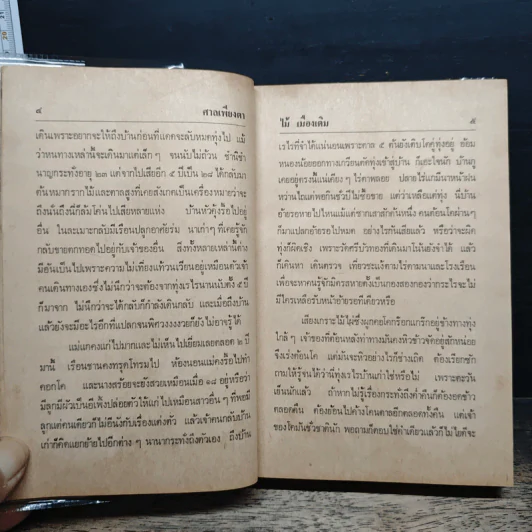 ๔
ศาลเพียงตา
เดินเพราะอยากจะให้ถึงบ้านก่อนที่แดดจะลับหมดทุ่งไป แม้
ว่าหนทางเหล่านี้จะเดินมาแต่เล็กๆ จนนับไม่ถ้วน ชำนิชำ
นาญกระทั่งอายุ ๒๓ แต่จากไปเสียอีก ๕ ปีเป็น ๒๘ ได้กลับมา
ต้นหมากรากไม้และตาลสูงที่เคยสังเกตเป็นเครื่องหมายว่าจะ
ถึงนั่นถึงนี่ก็ล้มโค่นไปเสียหลายแห่ง บ้านหัวคุ้งรื้อไปอยู่
อื่น ในละเมาะกลับมีเรือนปลูกอาศัยร่ม นาเก่าๆ ที่เคยรู้จัก
กลับขายตกทอดไปอยู่กับเจ้าของอื่น สิ่งทั้งหลายเหล่านี้ต่าง
มีอันเป็นไปเพราะความไม่เที่ยงแท้วนเวียนอยู่เหมือนตัวเจ้า
คนเดินทางเองซึ่งไม่นึกว่าจะต้องจากทุ่งเรไรนานนับตั้ง ๕ ปี
ก็มาจาก ไม่นึกว่าจะได้กลับก็กำลังเดินกลับ และเมื่อถึงบ้าน
แล้วยังจะมีอะไรอีกที่แปลกจนพิศวงงงงวยก็ยังไม่อาจรู้ได้
แม่แกคงแก่ไปมากและไม่เห็นไปเยี่ยมเลยตลอด ๒ ปี
มานี้ เรือนชานคงทรุดโทรมไป ห้องนอนแม่คงรื้อไปทำ
คอกโค และนางสร้อยจะยังสวยเหมือนเมื่อ ๑๘ อยู่หรือว่า
มีลูกมีผัวเป็นอีเพิ้งปล่อยตัวให้แก่ไปเหมือนสาวอื่นๆ ที่พอมี
ลูกแต่คนเดียวก็ไม่อินังกับเรื่องแต่งตัว แล้วเจ้าคนกลับบ้าน
เก่าก็คิดแยกย้ายไปอีกต่างๆ นานากระทั่งถึงตัวเอง ถึงบ้าน
ไม้ เมืองเดิม
๕
เรไรที่จำได้แน่นอนเพราะตาล ๕ ต้นยังเติบโตคู่ทุ่งอยู่ ย้อม
หนองน้อยออกทางเกวียนตัดทุ่งเข้าสู่บ้าน ก็เอะใจนัก บ้านกู
เคยอยู่ตรงนี้แน่เดียงๆ ไร่ตาพลอย ปลายไร่แกมีนาหน้าฝน
หว่านไถแต่พอยกินชั่วปีไม่ซื้อขาย แต่ว่าเหลือแต่ทุ่ง นี่บ้าน
อ้ายรอหายไปไหนแม้แต่ซากเสาสักต้นหนึ่ง คนต้อนโคผ่านๆ
ก็มาแปลกอ้ายรอไปหมด อย่างไรกันเสียแล้ว หรือว่าจะผิด
ทุ่งก็ผิดเซิ่ง เพราะวัดศรีบัวทองที่เดินมาในนั่นยังจำได้ แล้ว
ก็เดินหา เดินตรวจ เที่ยวชะแง้ตามไร่ตามนาและโรงเรือน
เพื่อจะหาคนรู้จักมิตรสหายตั้งเป็นกองสองกองว่ากระไรจะไม่
มีใครเหลือรับหน้าอ้ายรอทีเดียวหรือ
เสียงเกราะไม้ไผ่ซึ่งผูกคอโคกร๊อกแกร๊กอยู่ข้างทางทุ่ง
ใกล้ๆ เจ้าของที่ต้อนหลังท่าทางมั่นคงหัวขาวจุดอยู่สักหน่อย
จึงเร่งต้อนโค แต่มันจะหิวอย่างไรก็ช่างเถิด ต้องเรียกซัก
ถามให้รู้จนได้ว่านี่ทุ่งเรไรบ้านเก่าใช่หรือไม่ เพราะตะวัน
เย็นนักแล้ว ถ้าหากไม่รู้เรื่องกระทั่งถึงค่ำคืนก็ต้องอดข้าว
ตลอดคืน ต้องย้อนไปค้างโคนตาลอีกตลอดทั้งคืน แต่เจ้า
ของโคมันเชื่อวชาตินัก พอถามก็ตอบใช่คำเดียวแล้วก็ไม่ใยดีจะ